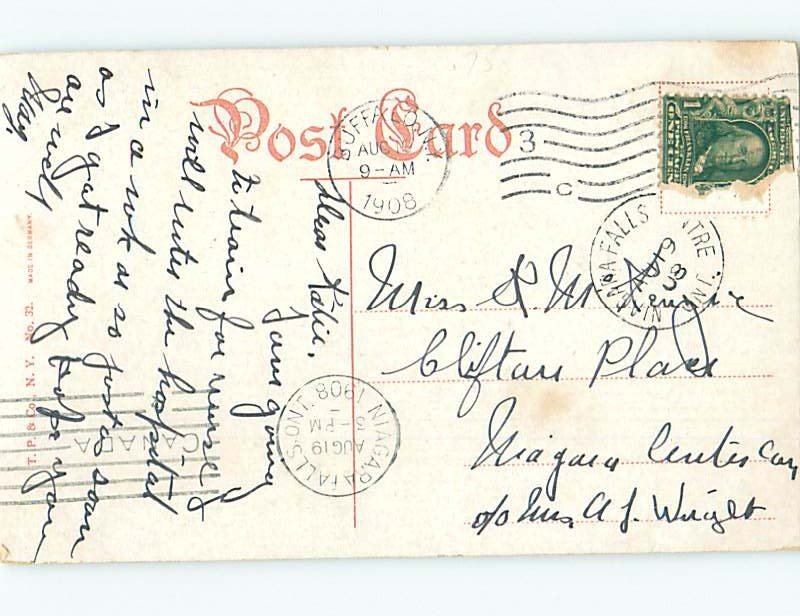 Post Card
BUFFALO, N.Y.
AUG
9-AM
1908
3
C
1
NIAGARA FALLS CENTRE
AU 19
08
ONT.
Dear Katie,
I am going
to train for nurse &
will enter the hospital
in a wk or so just as soon
as I get ready hope you
are well
May.
Miss K McKenzie
Clifton Place
Niagara Centre Can
c/o Mrs. A J. Wright
NIAGARA FALLS-ONT.
AUG 19
5-PM
1908
CANADA
T. P. & Co. N. Y. No. 33. MADE IN GERMANY.